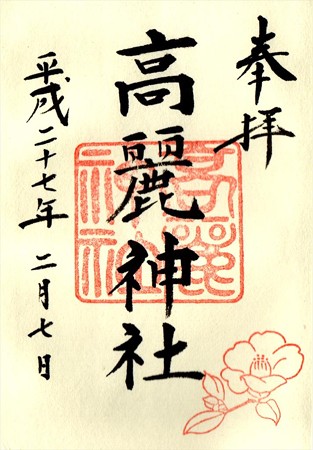 奉拝
高麗神社
高麗神社
平成二十七年 二月七日